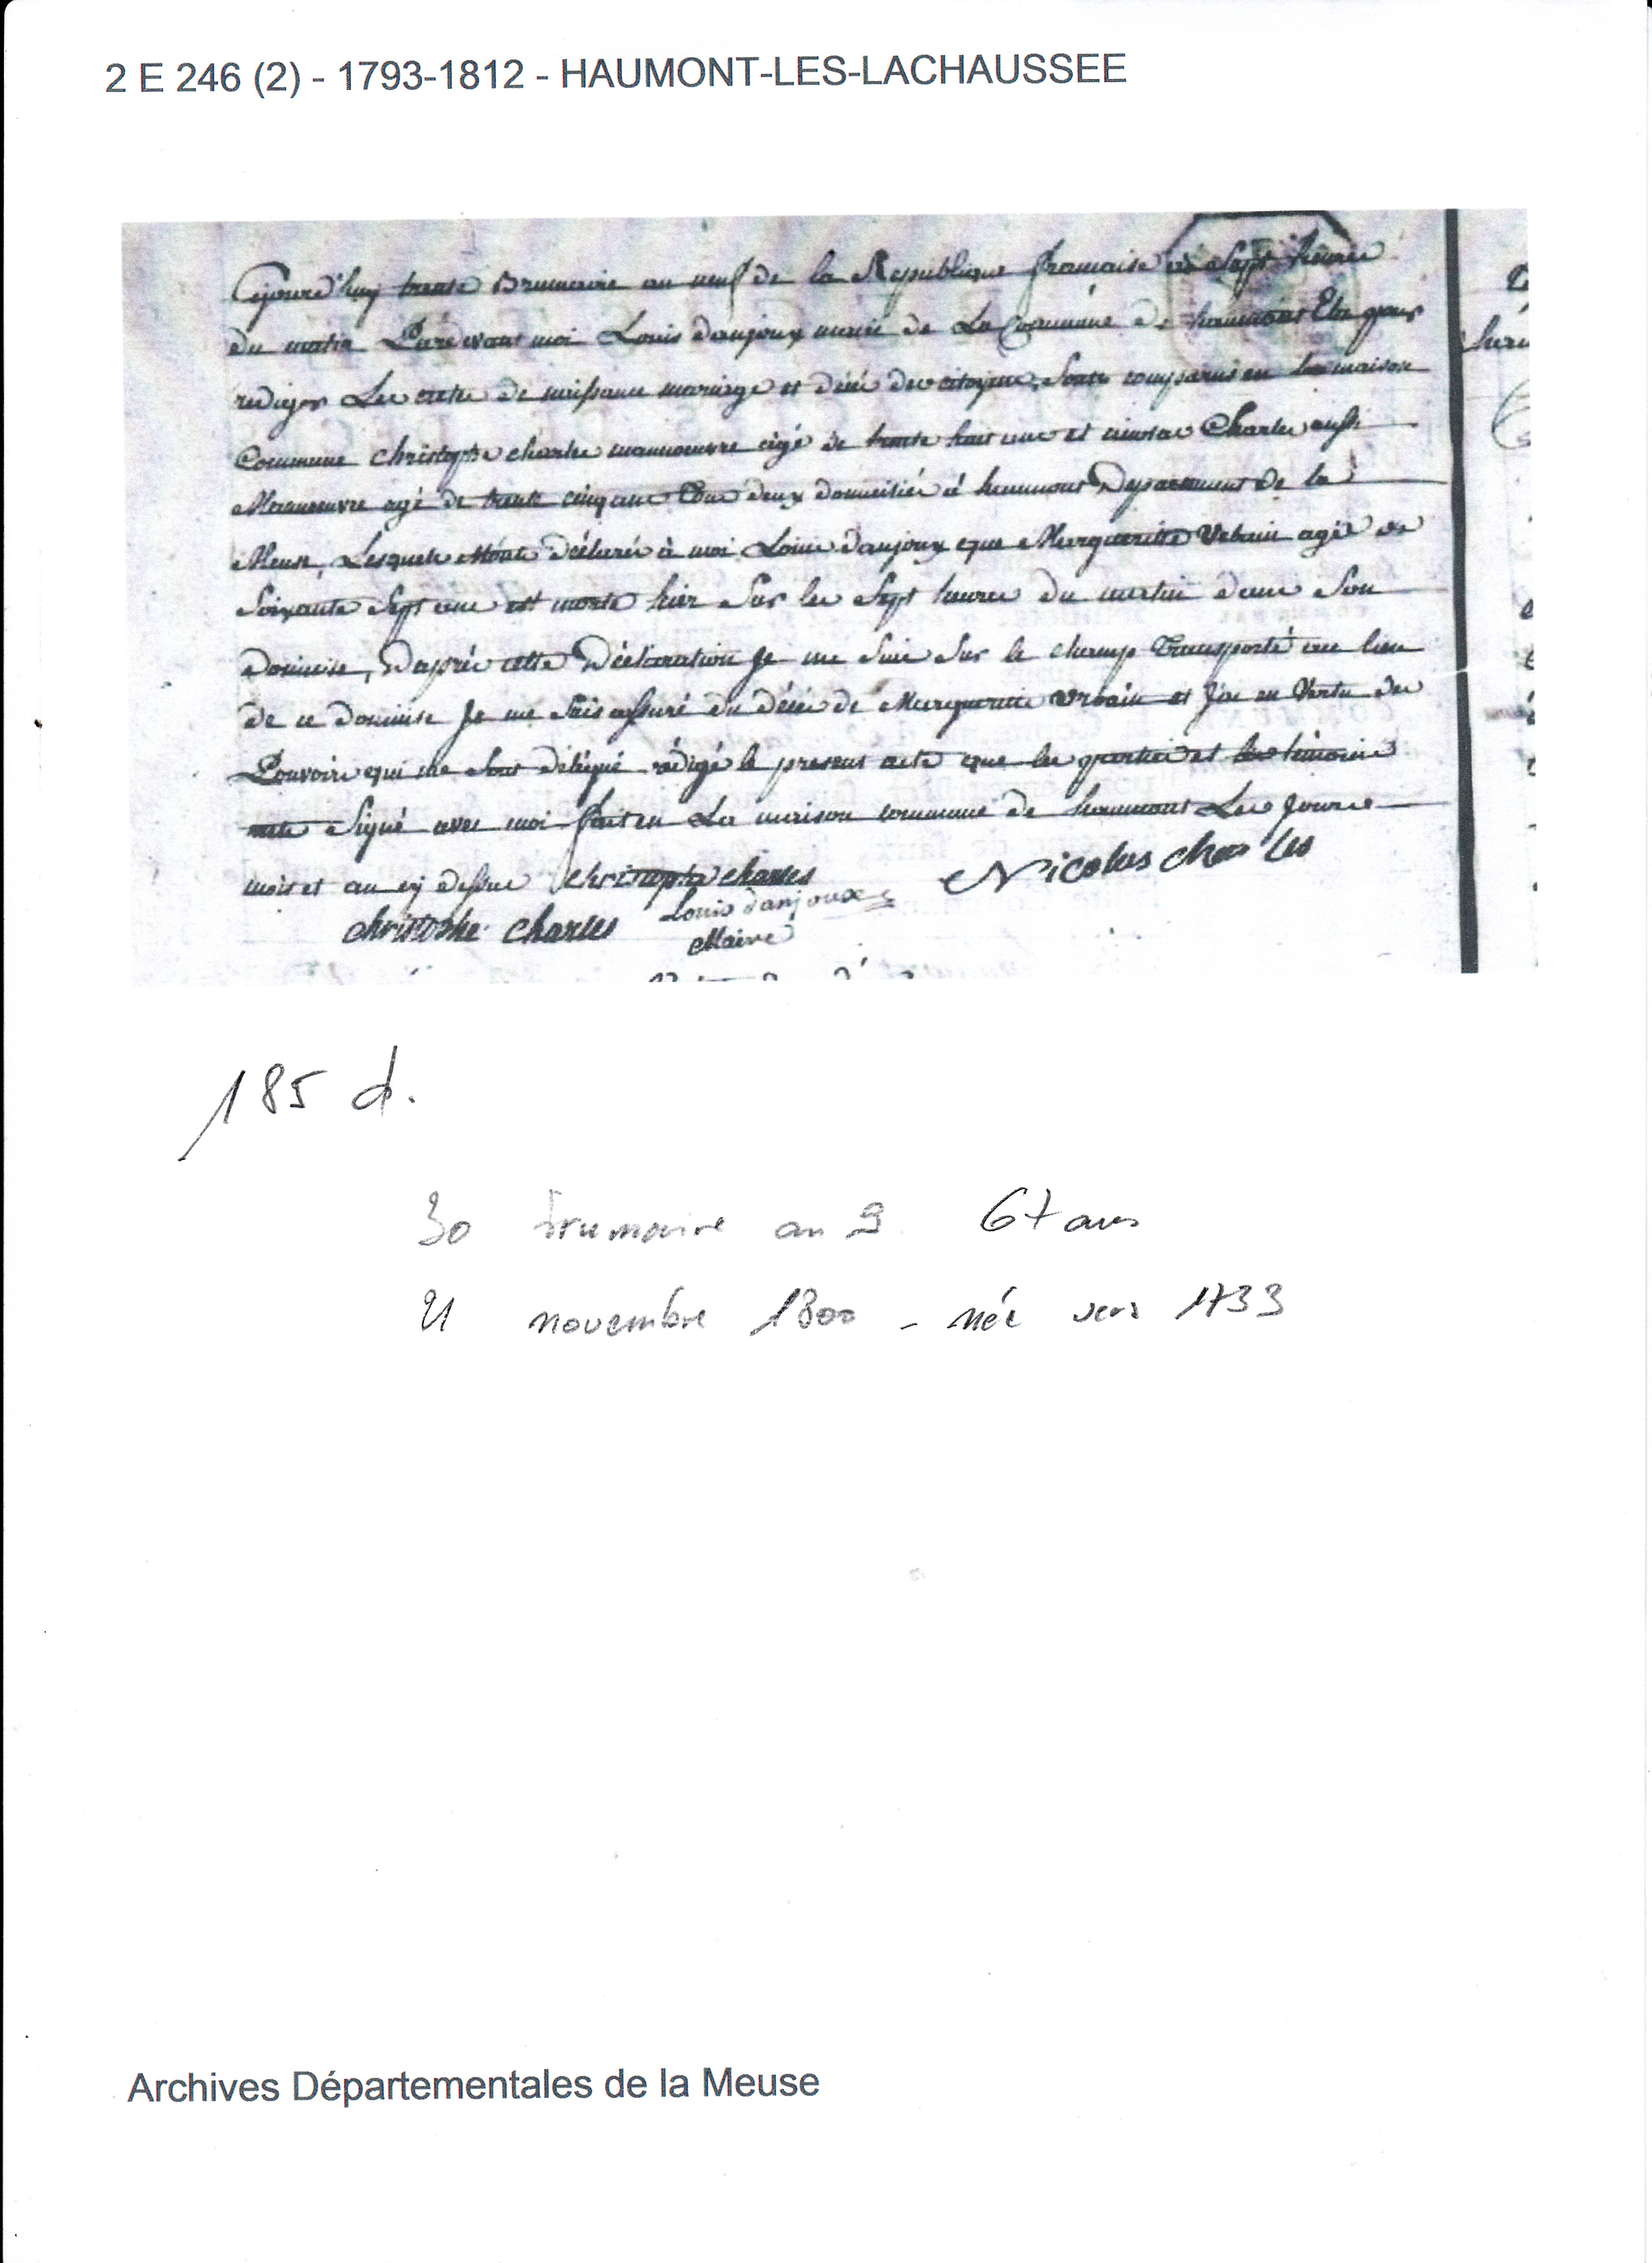 2 E 246 (2) - 1793-1812 - HAUMONT-LES-LACHAUSSEE
Cejourd'huy trente Brumaire an neuf de la Republique française à Sept heures
du matin Pardevant moi Louis danjoux maire de La Commune de haumont Elu pour
rediger Les actes de naissance mariage et décé des citoyens, Sont comparus en la maison
Commune christophe charles manoeuvre agé de trente huit ans et nicolas Charles aussi
Manoeuvre agé de trente cinq ans Tous deux domiciliés à haumont Departement de la
Meuse, Lesquels m'ont déclaré à moi Louis danjoux que Margueritte Urbain agé de
Soixante Sept ans est morte hier Sur les Sept heures du matin dans Son
domicile, D'après cette Déclaration Je me Suis Sur le champ Transporté au lieu
de ce domicile Je me Suis assuré du décés de Margueritte Urbain et J'ai en Vertu des
Pouvoirs qui me Sont délégué rédigé le present acte que les parties et les témoins
ont Signé avec moi fait en La maison commune de haumont Les Jours
mois et an cy dessus christophe charles Nicolas charles
christophe charles Louis danjoux
Maire
185 d.
30 brumaire an 9 67 ans
21 novembre 1800 - née vers 1733
Archives Départementales de la Meuse